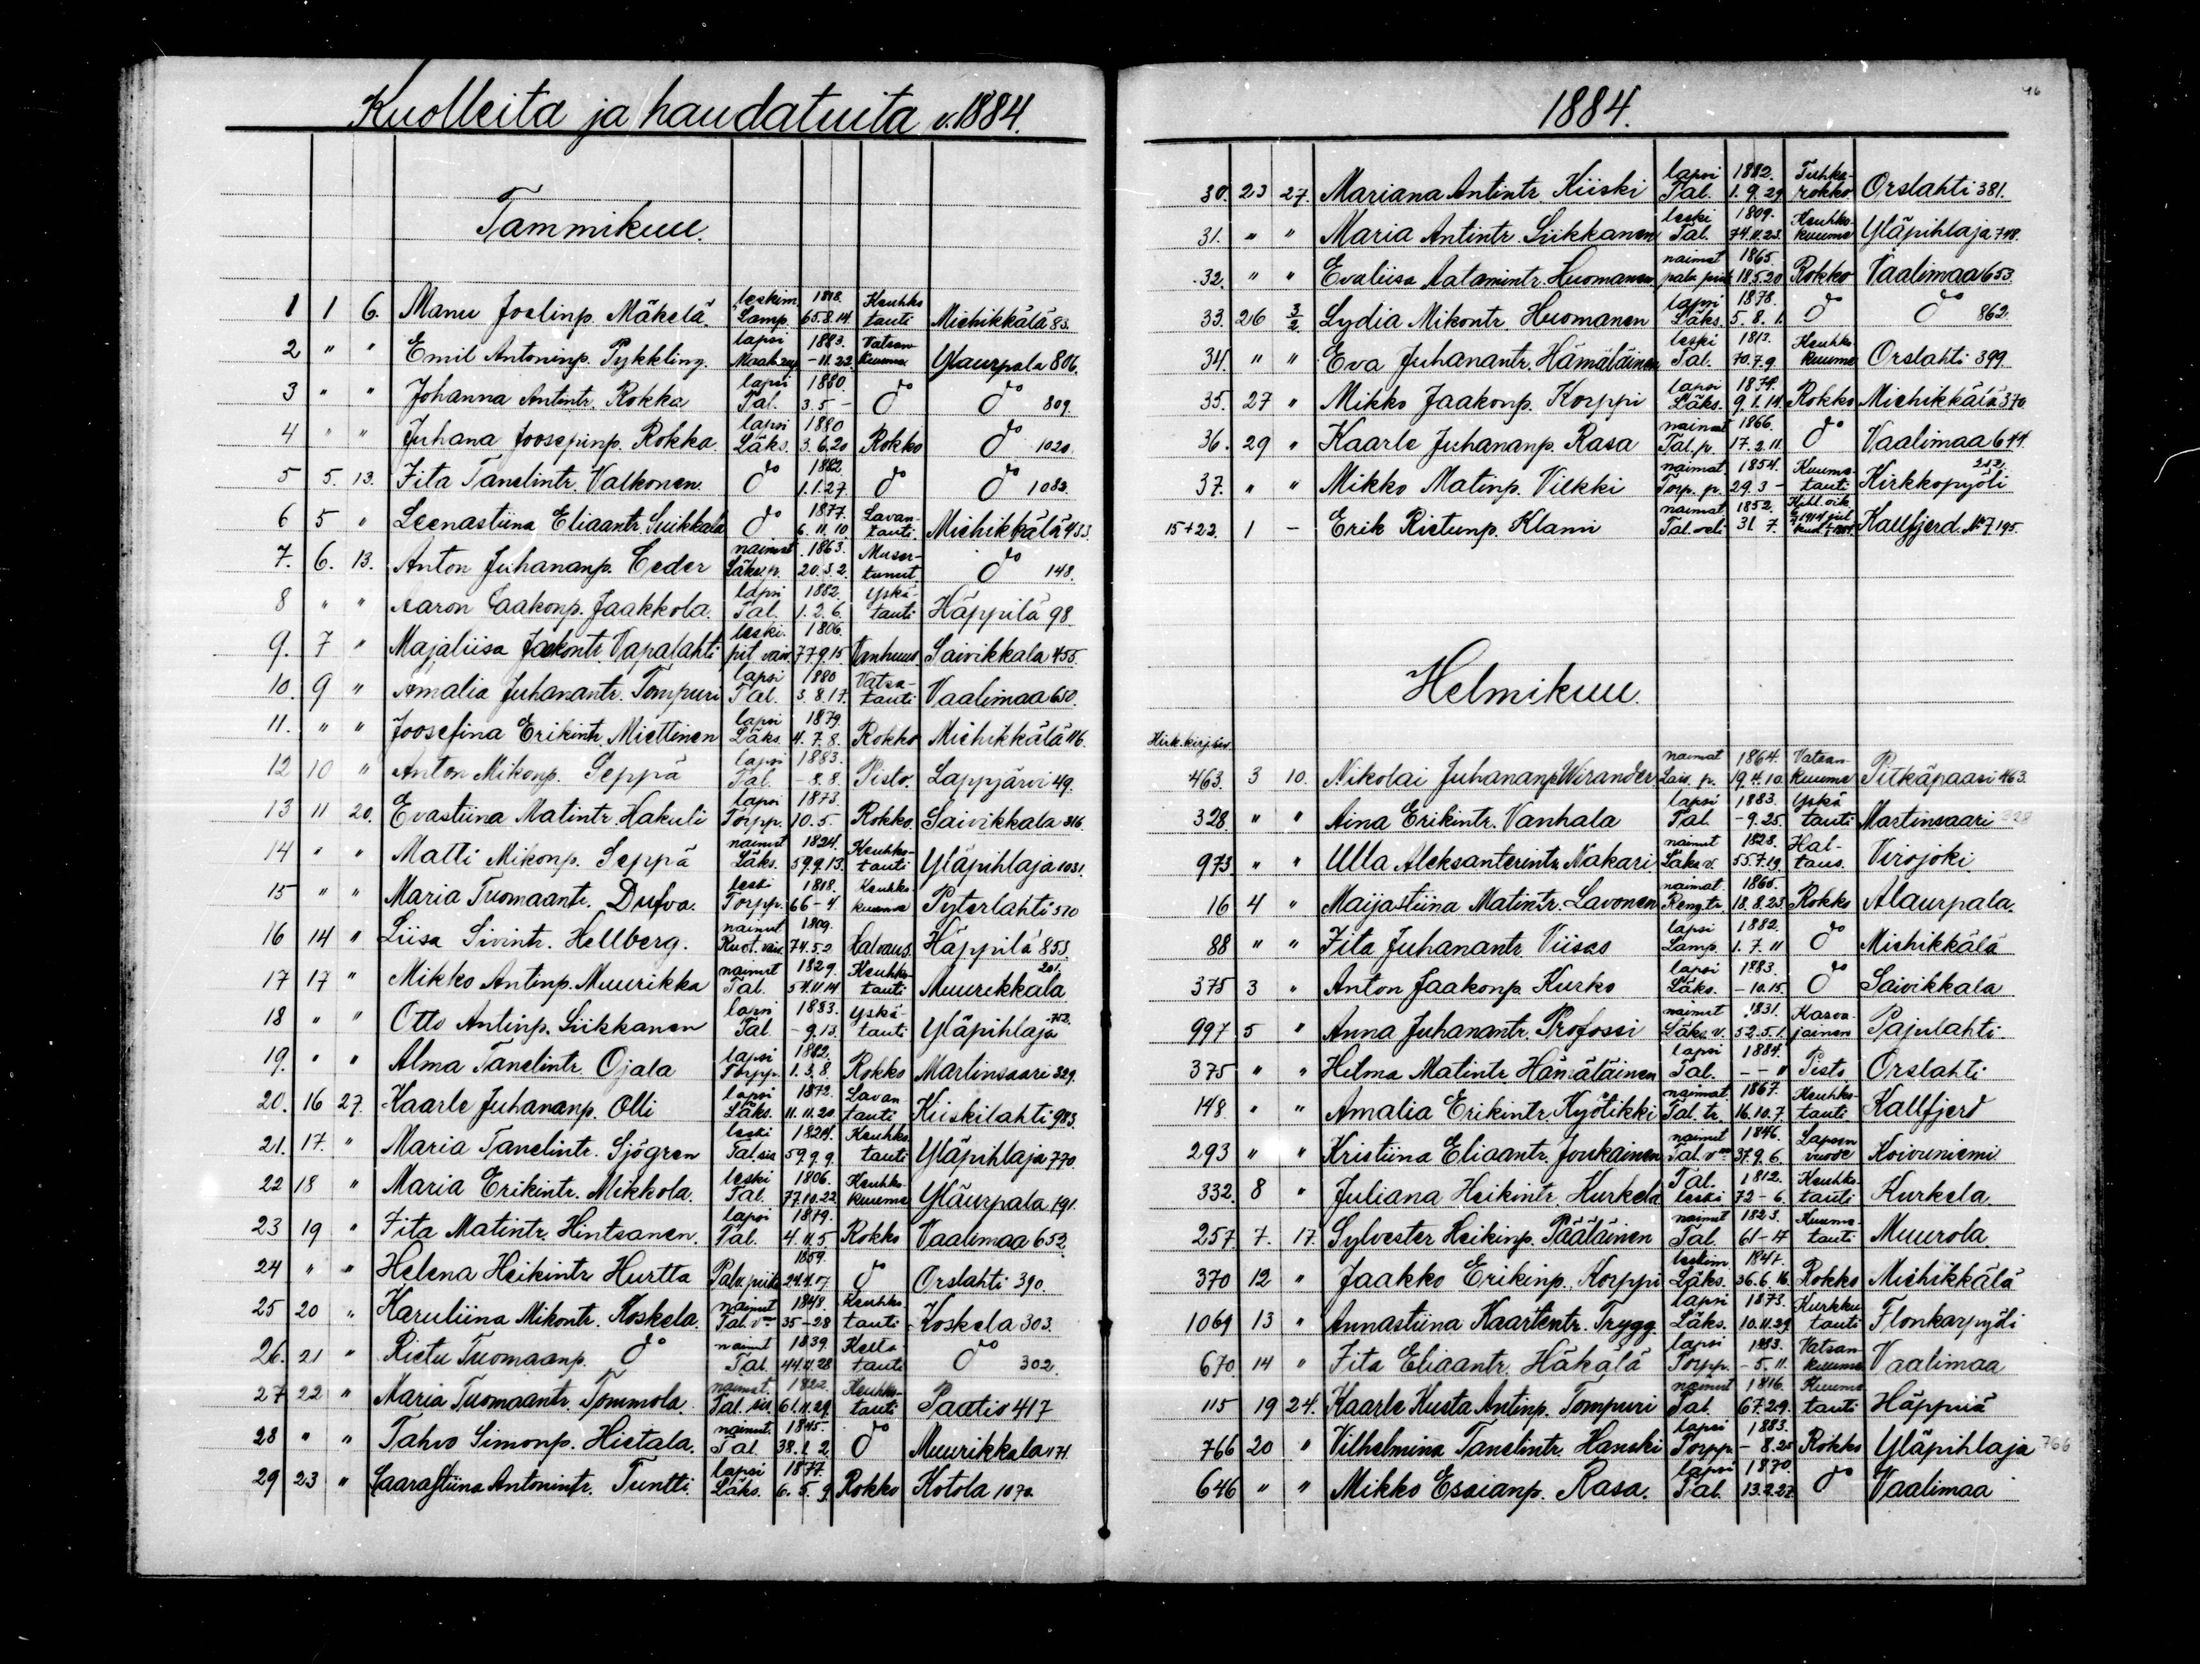 Kuolleita ja haudatuita v. 1884.
Tammikuu.
1 1 6. Manu Joelinp. Mäkelä. leskim. Lamp. 1818. 65.8.14. Keuhko tauti Miehikkälä 83.
2 " " Emil Antoninp. Pykkling. lapsi 1883. -11.22 Vatsan kuume Yläurpala 806.
3 " " Johanna Antintr. Rokka lapsi Tal. 1880. 3.5 - do do 809.
4 " " Juhana Joosepinp. Rokka. lapsi Läks. 1880 3.6.20 Rokko do 1020.
5 5. 13. Fita Tanelintr. Valkonen. do 1882. 1.1.27 do do 1082.
6 5 " Leenastiina Eliaantr. Suikkala do 1877. 6.11.10. Lavan- tauti Miehikkälä 433.
7. 6. 13. Anton Juhananp. Ceder naimat. Läks.p. 1863. 20.3.2. Muser- tunut do 148.
8 " " Aaron Caakonp. Jaakkola. lapsi Tal. 1882. 1.2.6. Yskä- tauti Häppilä 98.
9. 7 " Majaliisa Jaakontr. Vapalahti leski. pit. vaiv 1806. 77.9.15. Vanhuus Saivikkala 455.
10. 9 " Amalia Juhanantr. Tompuri lapsi Tal. 1880 3.8.17. Vatsa- tauti Vaalimaa 650.
11. " " Joosefina Erikintr. Miettinen lapsi Läks. 1879. 4.7.8. Rokko Miehikkälä 116.
12 10 " Anton Mikonp. Seppä lapsi Tal. 1883. - 8.8. Pisto. Lappjärvi 49.
13 11 20. Evastiina Matintr. Hakuli lapsi Torpp. 1873. 10.5 Rokko. Saivikkala 316.
14 " " Matti Mikonp. Seppä naimat Läks. 1824. 59.9.13. Keuhko- tauti Yläpihlaja 1031.
15 " " Maria Tuomaantr. Dufva. leski Torpp. 1818. 66-4 Keuhko- kuume Pyterlahti 510
16 14 " Liisa Sivintr. Hellberg. naimat Ruot. vaiv. 1809. 74.5.2 Halvaus. Häppilä 853.
17 17 " Mikko Antinp. Muurikka naimat Tal. 1829. 54.11.14 Keuhko- tauti Muurikkala 201.
18 " " Otto Antinp. Siikkanen lapsi Tal. 1883. - 9.13. Yskä- tauti Yläpihlaja 752.
19. " " Alma Tanelintr. Ojala lapsi Torpp. 1882. 1.3.8. Rokko Martinsaari 329.
20. 16 27. Kaarle Juhananp. Olli lapsi Läks. 1872. 11.11.20. Lavan tauti Kiiskilahti 983.
21. 17. " Maria Tanelintr. Sjögren leski Tal. sis 1824. 59.9.9. Keuhko. tauti Yläpihlaja 770.
22 18 " Maria Erikintr. Mikkola. leski Tal. 1806. 77.10.22. Keuhko- kuume Yläurpala 191.
23 19 " Fita Matintr. Hintsanen. lapsi Tal. 1879. 4.11.5. Rokko Vaalimaa 652.
24 " " Helena Heikintr. Hurtta Palv. piika 1859. do Orslahti 390.
25 20 " Karuliina Mikontr. Koskela. naimat Tal. vo 1848. 35-28 Keuhko. tauti Koskela 303.
26. 21 " Rietu Tuomaanp. do naimat Tal. 1839. 44.11.28 tauti do 302.
27 22 " Maria Tuomaantr. Tommola. naimat. Tal. sis. 1822. 61.11.29. Keuhko- tauti Paatio 417
28 " " Tahvo Simonp. Hietala. naimat. Tal. 1845. 38.1.2. do Muurikkala 171.
29 23 " Caarastiina Antonintr. Tuntti. lapsi Läks. 1877. 6.5.9. Rokko Kotola 1070.
1884.
46
30. 23 27. Mariana Antintr. Kiiski lapsi Tal. 1882. 1.9.29 Tuhka- rokko Orslahti 381.
31. " " Maria Antintr. Siikkanen leski Tal. 1809. 74.11.23. Keuhko- kuume Yläpihlaja 748.
32. " " Evaliisa Aatamintr. Huomanen naimat palv. piik. 1865. 18.5.20 Rokko Vaalimaa 653.
33. 26 3/2. Lydia Mikontr. Huomanen lapsi Läks 1878. 5.8.1. do do 862.
34. " " Eva Juhanantr. Hämäläinen leski Tal. 1813. 70.7.9 Keuhko kuume Orslahti 399.
35. 27 " Mikko Jaakonp. Korppi lapsi Läks. 1874. 9.1.14. Rokko Miehikkälä 370.
36. 29 " Kaarle Juhananp. Rasa naimat Tal. p. 1866. 17.2.11. do Vaalimaa 644.
37. " " Mikko Matinp. Vilkki naimat. Torp. p. 1854. 29 3 - Kuume- tauti Kirkkopyöli 212.
15+22. 1 - Erik Rietunp. Klami naimat Tal. veli 1852. 31 7. Kallfjerd. No 7 195.
Helmikuu.
Kirk.kirj. siv.
463. 3 10. Nikolai Juhananp. Wirander. naimat p. 1864. 19.4.10. Vatsan- kuume Pitkäpaasi 463.
328. " " Aina Erikintr. Vanhala lapsi Tal 1883. - 9.25. Yskä tauti Martinsaari 328
973. " " Ulla Aleksanterintr. Nakari naimat Läks v. 1828. 55.7.19. Hal- vaus. Virojoki.
16 4 " Maijastiina Matintr. Lavonen naimat. Reng. tr. 1865. 18.8.23. Rokko Alaurpala.
88 " " Fita Juhanantr. Viisas lapsi Lamp. 1882. 1.7.11 do Miehikkälä
375 3 " Anton Jaakonp. Kurko lapsi Läks. 1883. - 10.15. do Saivikkala
997. 5 " Anna Juhanantr. Profossi naimat Läks. v. 1831. 52.5.1. Kasva- jainen Pajulahti.
375 " " Helma Matintr. Hämäläinen lapsi Tal. 1884. - - " Pisto Orslahti
148. " " Amalia Erikintr. Kyötikki naimat. Tal. tr. 1867. 16.10.7. Keuhko- tauti. Kallfjerd
293 " " Kristiina Eliaantr. Joukainen naimat Tal. vo 1846. 37.9.6. Lapsen vuode Koivuniemi
332. 8 " Juliana Heikintr. Kurkela Tal. leski 1812. 72-6. Keuhko- tauti Kurkela.
257 7. 17. Sylvester Heikinp. Pääläinen naimat Tal. 1823. 61-14 Kuume- tauti Muurola.
370 12 " Jaakko Erikinp. Korppi leskim. Läks. 1847. 36.6.16. Rokko Miehikkälä
1069 13 " Annastiina Kaarlentr. Trygg. lapsi Läks. 1873. 10.11.29. Kurkku tauti Flonkarpyöli
670. 14 " Fita Eliaantr. Häkälä lapsi Torpp. 1883. - 5.11. Vatsan- kuume Vaalimaa
115 19 24. Kaarle Kusta Antinp. Tompuri naimat Tal. 1816. 67.29. Kuume- tauti Häppilä
766 20 " Vilhelmina Tanelintr. Hanski lapsi Torpp. 1883. - 8.25 Rokko Yläpihlaja 766
646 " " Mikko Esaianp. Rasa. lapsi Tal. 1870. 13.2.27. do Vaalimaa